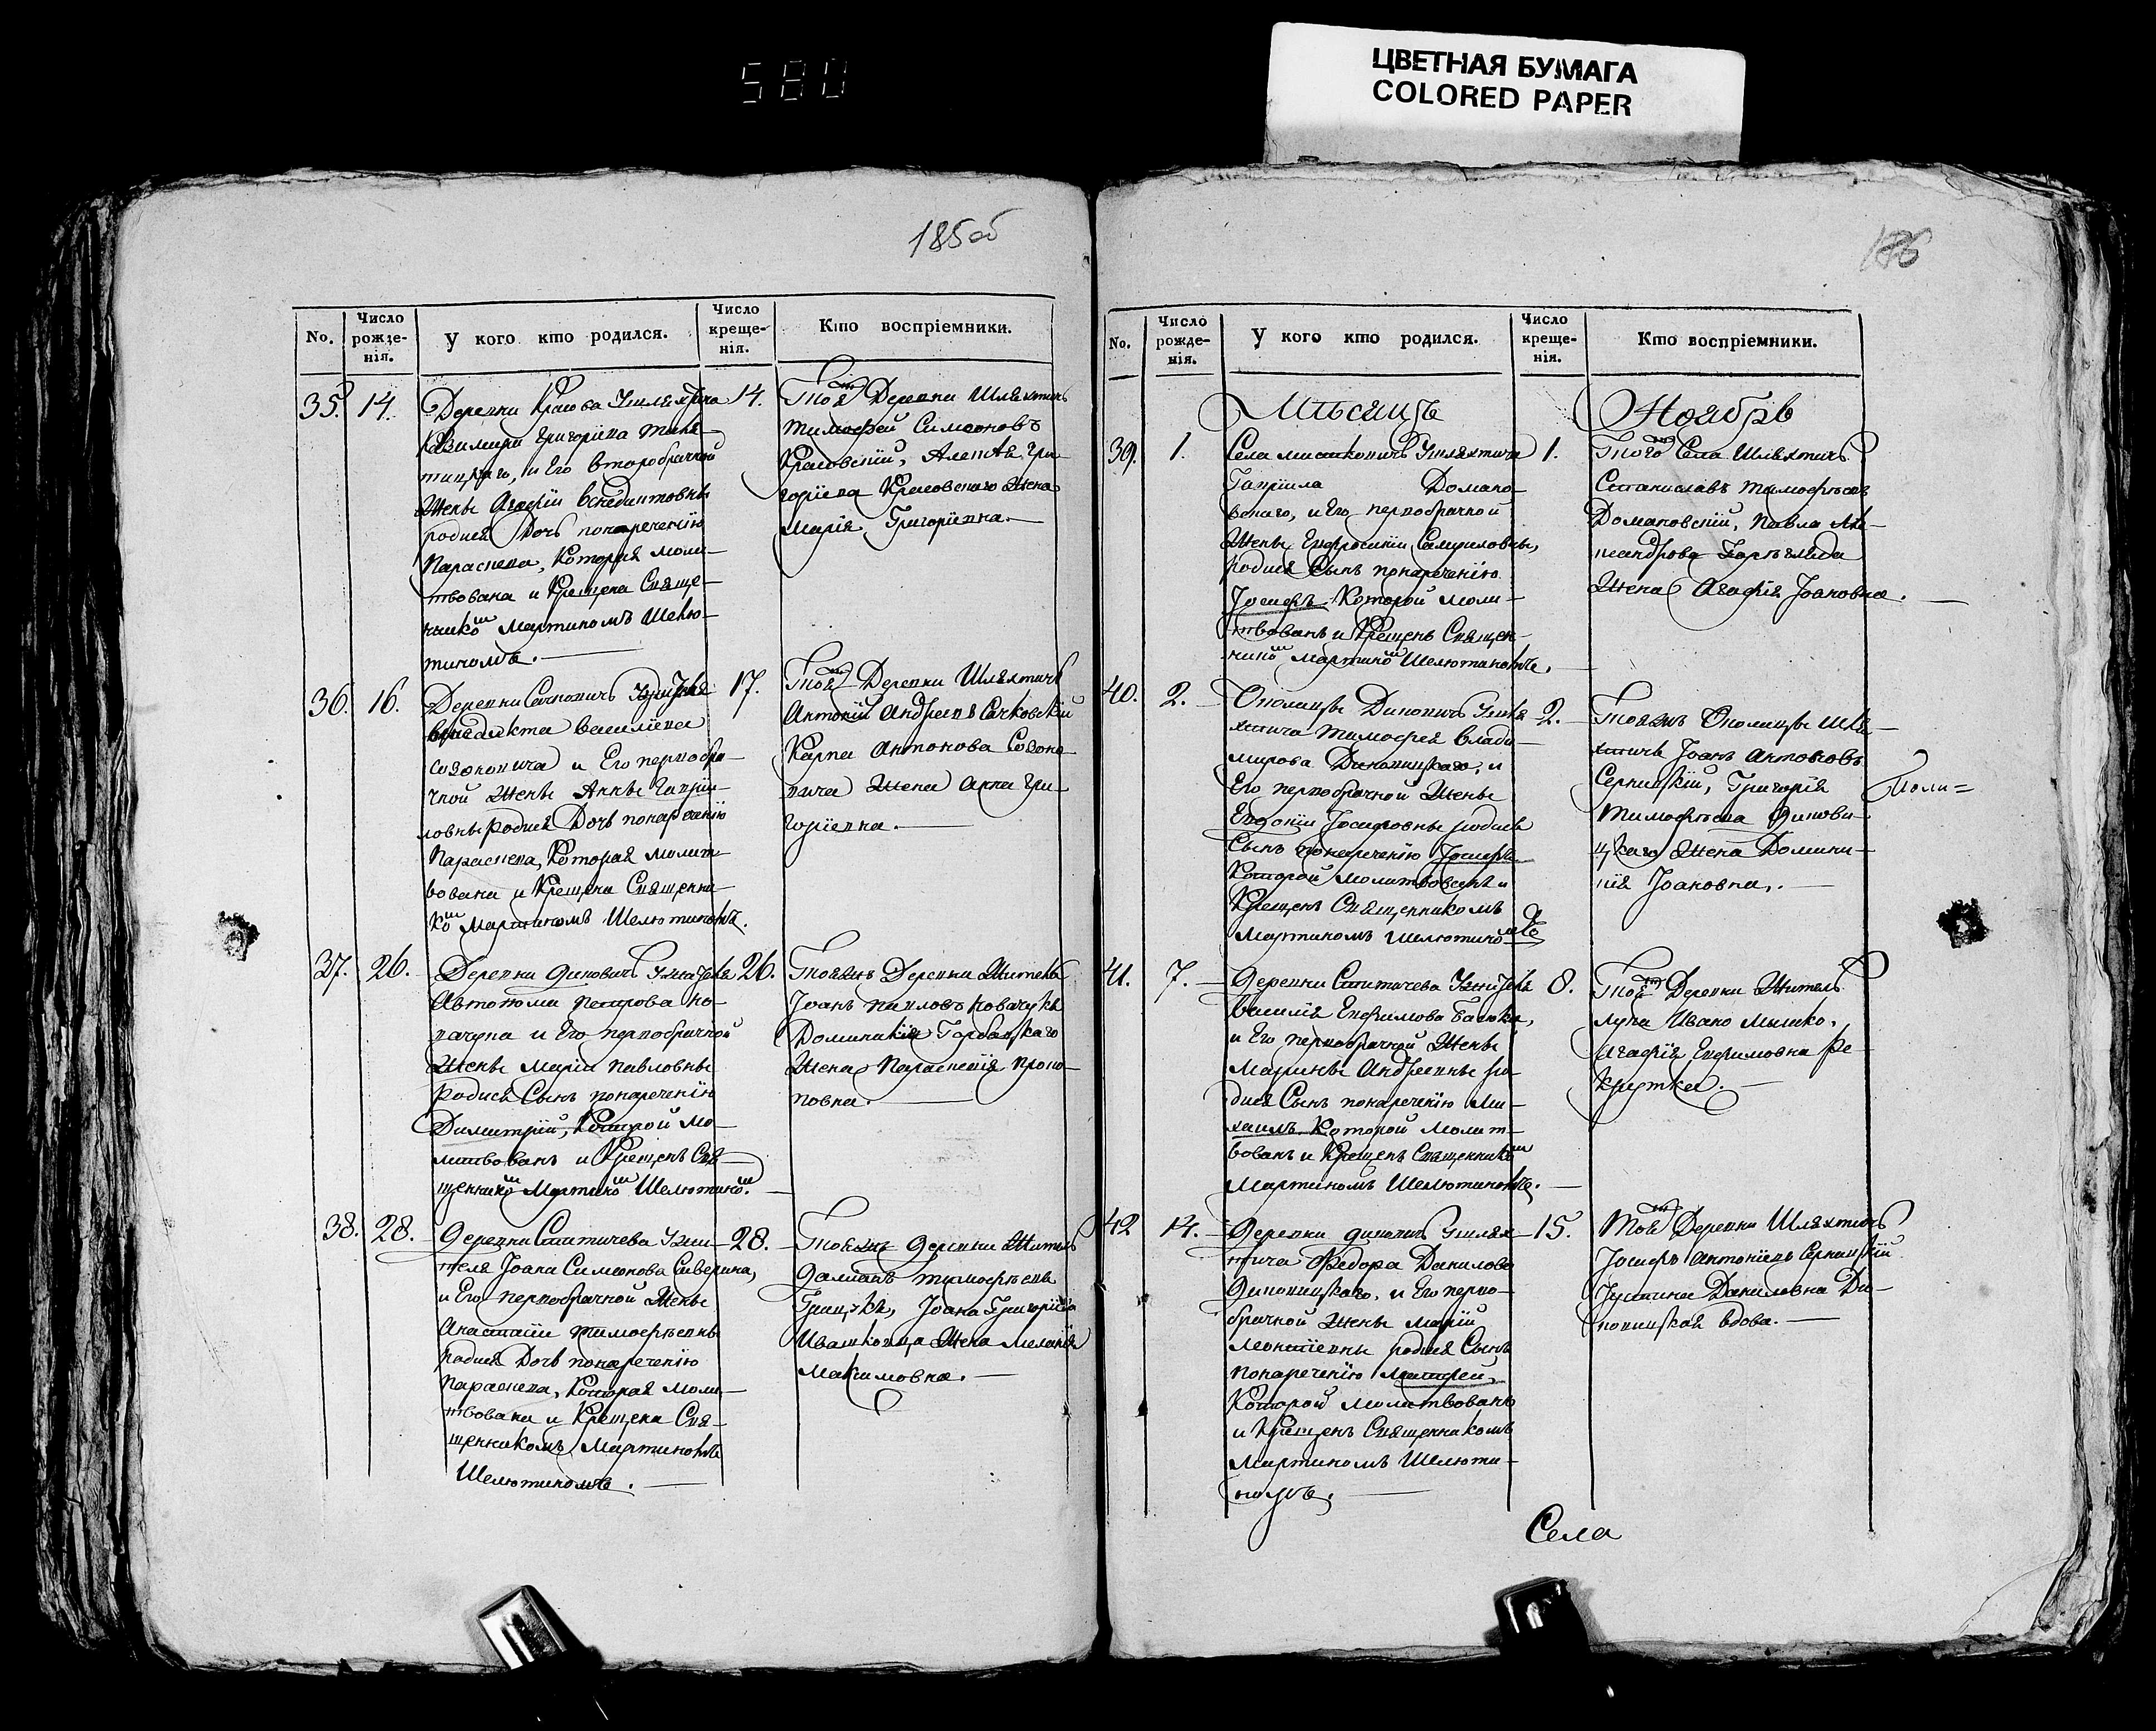 580
ЦВЕТНАЯ БУМАГА
COLORED PAPER
185об
186
No.
Число рожде-нія.
У кого кто родился.
Число креще-нія.
Кто воспріемники.
35. 14.
Деревни Красова Ушляхтича
Казимира Григоріева
тицкаго, и Его второбрачной
Жены Агафіи Венедиктовны
родися Дочь понареченію
Параскева, Которая моли-
твована и Крещена Свяще-
никомъ Мартиномъ Шелю-
тиномъ.
14.
Тояжъ Деревни Шляхтичъ
Тимофей Симеоновъ
Красовскій, Алексѣя Гри-
горіева Красовскаго Жена
Марія Григоріевна.
36. 16.
Деревни Сачковичъ Ужителя
Венедикта Василіева
Созоновича и Его первобра-
чной Жены Анны Гаврии-
ловны родися Дочь понареченію
Параскева, Которая молит-
вована и Крещена Священни-
комъ Мартиномъ Шелютиномъ.
17.
Тояжъ Деревни Шляхтичъ
Антоній Андреевъ Сачковскій
Карпа Антонова Созоно-
вича Жена Анна Гри-
горіевна.
37. 26.
Деревни Диновичъ Ужителя
Автонома Петрова Ко-
вачука и Его первобрачной
Жены Маріи Павловны
родися Сынъ понареченію
Димитрій, Которой мо-
литвованъ и Крещенъ Свя-
щенникомъ Мартиномъ Шелютиномъ.
26.
Тояжъ Деревни Житель
Іоанъ Павловъ Ковачукъ
Доминикія Горбацкаго
Жена Параскевія Проко-
повна.
38. 28.
Деревни Ститичева Ужи-
теля Іоана Симеонова Сиверина,
и Его первобрачной Жены
Анастасіи Тимофѣевны
родися Дочь понареченію
Параскева, Которая моли-
твована и Крещена Свя-
щенникомъ Мартиномъ
Шелютиномъ.
28.
Тояжъ Деревни Житель
Даміанъ Тимофѣевъ
Грицукъ, Іоана Григоріева
Ивашковца Жена Меланія
Максимовна.
No.
Число рожде-нія.
У кого кто родился.
Число креще-нія.
Кто воспріемники.
Мѣсяцъ Ноябрь
39. 1.
Села Мисковичъ Ушляхтича
Гавріила Домано-
вскаго, и Его первобрачной
Жены Евфросиніи Самуиловны,
родися Сынъ понареченію
Іосифъ Которой моли-
твованъ и Крещенъ Священ-
никомъ Мартиномъ Шелютиномъ.
1.
Тогожъ Села Шляхтичъ
Станиславъ Тимофѣевъ
Домановскій, Павла Але-
ксандрова
Жена Агафія Іоановна.
40. 2.
Околицы Диковичъ Ушля-
хтича Тимофея Влади-
мирова Диковицкаго, и
Его первобрачной Жены
Евдокіи Іосифовны родися
Сынъ понареченію Іосифъ
Которой Молитвованъ и
Крещенъ Священникомъ
Мартиномъ Шелютиномъ
2.
Тояжъ Околицы Шля-
хтичъ Іоанъ Антоновъ
Серницкій, Григорія
Тимофѣева Дикови-
цкаго Жена Домини-
кія Іоановна.
41. 7.
Деревни Ститичева Ужителя
Василія Евфимова Басюка,
и Его первобрачной Жены
Марины Андреевны ро-
дися Сынъ понареченію Ми-
хаилъ Которой молит-
вованъ и Крещенъ Священникомъ
Мартиномъ Шелютиномъ.
8.
Тояжъ Деревни Житель
Лука Ивано
Агафія Евфимовна Ре-
крутка.
42 14.
Деревни Диковичъ Ушлях-
тича Федора Данилова
Диковицкаго, и Его перво-
брачной Жены Маріи
Леонтіевны родися Сынъ
понареченію Матфей,
Которой Молитвованъ
и Крещенъ Священникомъ
Мартиномъ Шелюти-
номъ.
15.
Тояжъ Деревни Шляхтичъ
Іосифъ Антоніевъ Серницкій
Іустина Даниловна Ди-
ковицкая вдова.
Села